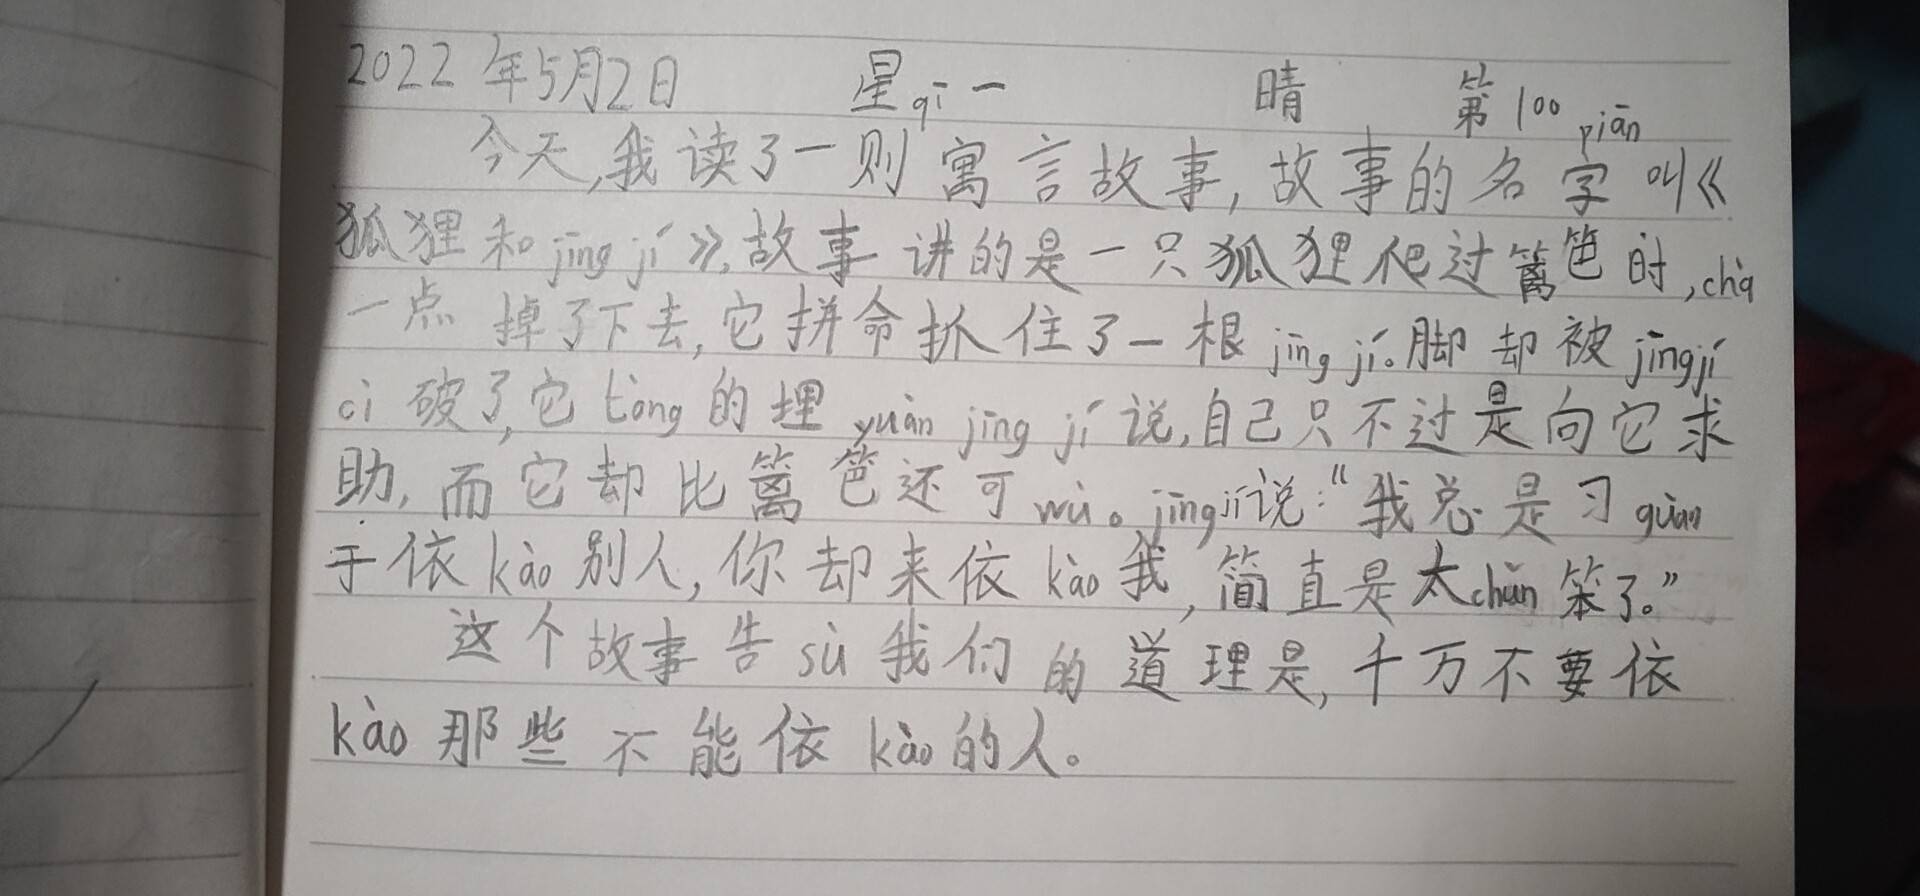 2022年5月2日 星qī一 晴 第100piān
今天,我读了一则寓言故事,故事的名字叫《
狐狸和jīng jí》,故事讲的是一只狐狸爬过篱笆时,chà
一点掉了下去,它拼命抓住了一根jīng jí。脚却被jīngjí
cì破了,它tòng的埋yuàn jīng jí说,自己只不过是向它求
助,而它却比篱笆还可wù。jīngjí说:“我总是习guàn
于依kào别人,你却来依kào我,简直是太chǔn笨了。”
这个故事告sù我们的道理是,千万不要依
kào那些不能依kào的人。